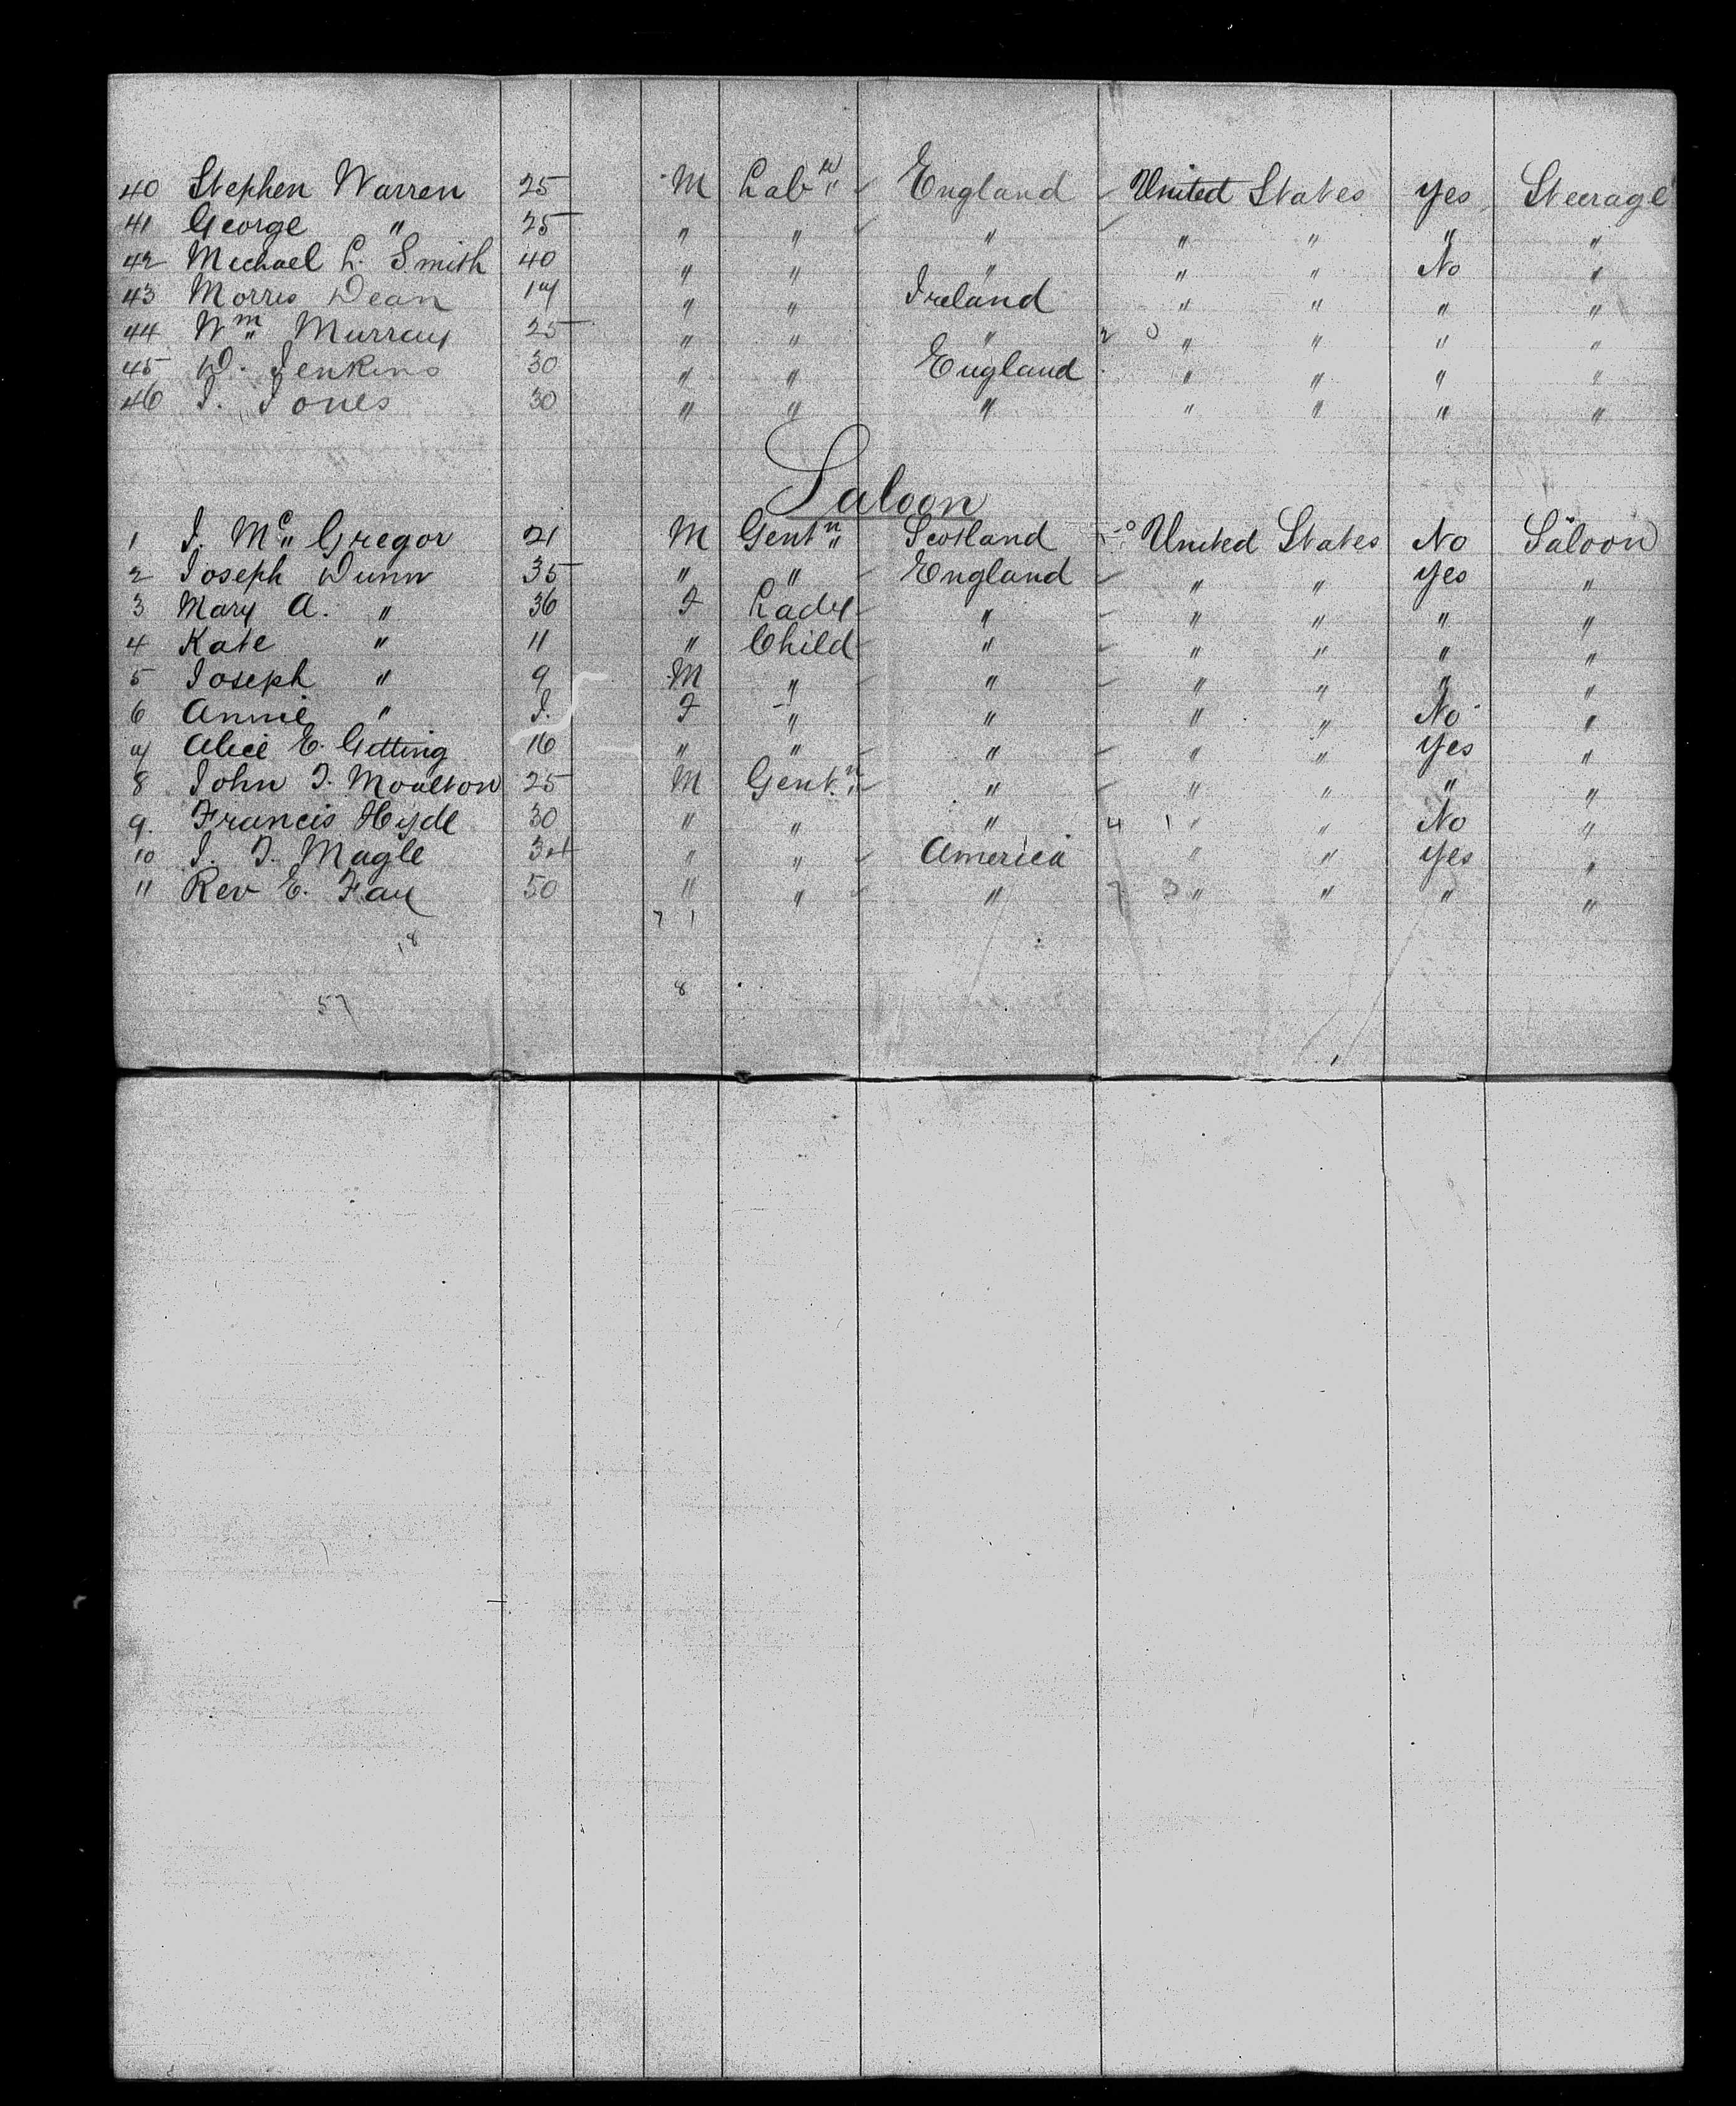 40 Stephen Warren 25 M Lab'r " England United States Yes Steerage
41 George " 25 " " " " " " "
42 Michael L. Smith 40 " " " " " No "
43 Morris Dean 17 " " Ireland " " " "
44 Wm " Murray 25 " " " 2 0 " " " "
45 D. Jenkins 30 " " England " " " "
46 J. Jones 30 " " " " " " "
Saloon
1 J. Mc" Gregor 21 M Gentn " Scotland United States No Saloon
2 Joseph Dunn 35 " " England " " Yes "
3 Mary A. " 36 F Lady " " " " "
4 Kate " 11 " Child " " " " "
5 Joseph " 9 M " " " " " "
6 Annie " I. F " " " " No "
7 Alice E. Getting 16 " " " " " Yes "
8 John T. Moulton 25 M Gentn " " " " " "
9. Francis Hyde 30 " " " 4 1 " " No "
10 J. T. Magle 34 " " America " " Yes "
11 Rev E. Fay 50 " " " 7 3 " " " "
7 1
18
8
57